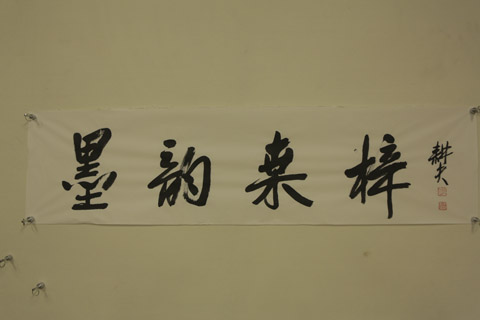 墨韵桑梓
耕夫